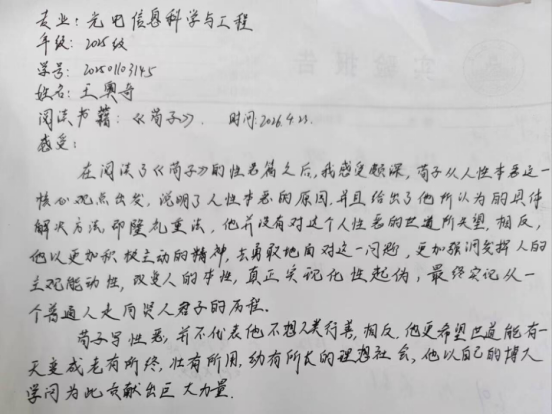 专业:光电信息科学与工程
年级:2025级
学号:202501103145
姓名:王奥奇
阅读书籍:《荀子》. 时间:2026.4.23.
感受:
在阅读了《荀子》的性恶篇之后,我感受颇深,荀子从人性本恶这一
核心观点出发,说明了人性本恶的原因,并且给出了他所认为的具体
解决方法,即隆礼重法,他并没有对这个人性恶的世道所失望,相反,
他以更加积极主动的精神,去勇敢地面对这一问题,更加强调发挥人的
主观能动性,改变人的本性,真正实现化性起伪,最终实现从一
个普通人走向贤人君子的历程.
荀子写性恶,并不代表他不想人类行善,相反,他更希望世道能有一
天变成老有所终,壮有所用,幼有所长的理想社会,他以自己的博大
学问为此贡献出巨大力量.